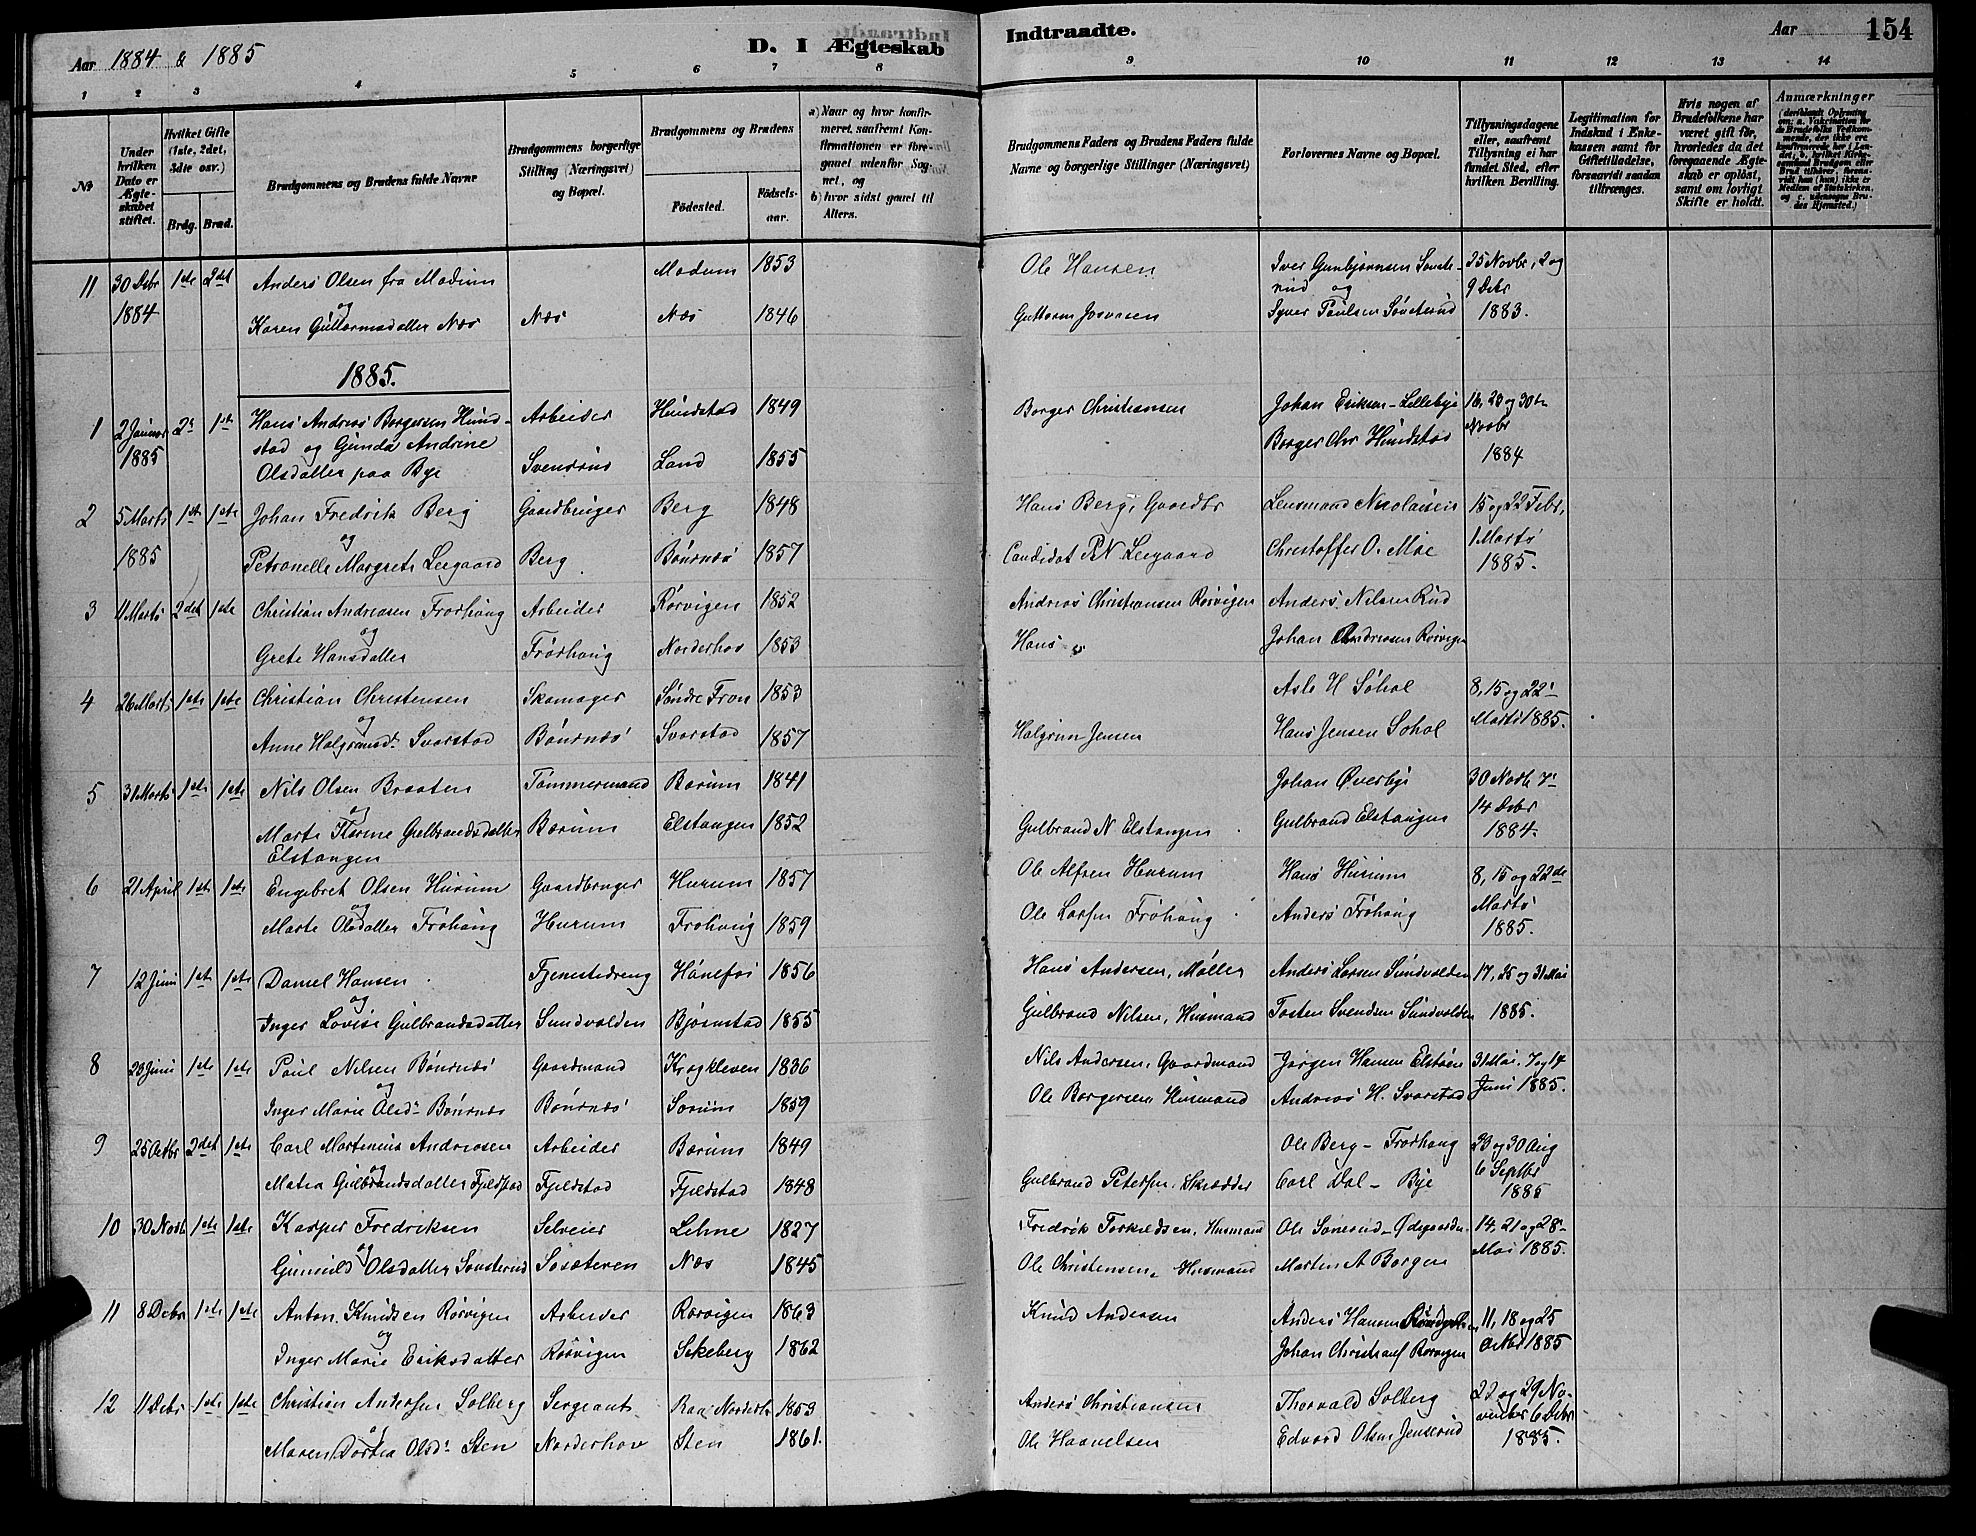 Aar 1884 & 1885
D. I Ægteskab
Indtraadte.
Aar
154
1 2 3 4 5 6 7 8 9 10 11 12 13 14
No
Under hvilken Dato er Ægteskabet stiftet.
Hvilket Gifte (1ste, 2det, 3die osv.)
Brdg. Brud.
Brudgommens og Brudens fulde Navne
Brudgommens borgerlige Stilling (Næringsvei) og Bopæl.
Brudgommens og Brudens
Fødested.
Fødselsaar.
a) Naar og hvor konfirmeret, saafremt Konfirmationen er foregaaet udenfor Sognet, og
b) hvor sidst gaaet til Alters.
Brudgommens Faders og Brudens Faders fulde Navne og borgerlige Stillinger (Næringsvei)
Forlovernes Navne og Bopæl.
Tillysningsdagene eller, saafremt Tillysning ei har fundet Sted, efter hvilken Bevilling.
Legitimation for Indskud i Enkekassen samt for Giftetilladelse, forsaavidt saadan tiltrænges.
Hvis nogen af Brudefolkene har været gift før, hvorledes da det foregaaende Ægteskab er opløst, samt om lovligt Skifte er holdt.
Anmærkninger
11 30 Debr 1ste 2det Anders Olsen fra Modum Modum 1853 Ole Hansen Iver Gunbjørnsen Sonste- 25 Novbr, 2 og
1884 og rud og 9 Debr
Karen Guttormsdatter Næs Næs Næs 1846 Guttorm Josvasen Syver Paulsen Sønsterud 1883.
1885.
1 2 Januar 2t 1ste Hans Andreas Borgersen Hund- Arbeider Hundstad 1849 Borger Christiansen Johan Eriksen-Lillebye 16, 23 og 30te
1885 stad og Gunda Andrine Borger Chr Hundstad Novbr
Olsdatter paa Bye Svendsrud Land 1855 1884
2 5 Marts 1ste 1ste Johan Fredrik Berg Gaardbruger Berg 1848 Hans Berg, Gaardbr Lensmand Nicolaisen 15 og 22 Febr,
1885 og 1 Marts
Petronelle Margrete Leegaard Berg Bønsnæs 1857 Candidat P N Leegaard Christoffer O. Moe 1885.
3 11 Marts 2det 1ste Christian Andreasen Frørhaug Arbeider Rørvigen 1852 Andreas Christiansen Rørvigen Anders Nilsen Rud
og
Grete Hansdatter Frørhaug Norderhov 1853 Hans Johan Andreasen Rørvigen
4 26 Marts 1ste 1ste Christian Christensen Skomager Søndre Fron 1853 Asle H Søhol 8, 15 og 22
og Marts 1885.
Anne Halgrimsd. Svarstad Bønsnæs Svarstad 1857 Halgrim Jensen Hans Jensen Søhol
5 31 Marts 1ste 1ste Nils Olsen Braaten Tømmermand Bærum 1841 Johan Øverbye 30 Novb. 7
og 14 Debr
Marte Karine Gulbrandsdatter Bærum Elstangen 1852 Gulbrand N Elstangen Gulbrand Elstangen 1884.
Elstangen
6 21 April 1ste 1ste Engebret Olsen Hurum Gaardbruger Hurum 1857 Ole Alfsen Hurum Hans Hurum 8, 15 og 22de
og Marts
Marte Olsdatter Frøhaug Hurum Frøhaug 1859 Ole Larsen Frøhaug Anders Frøhaug 1885.
7 12 Juni 1ste 1ste Daniel Hansen Tjenestedreng Hønefos 1856 Hans Andersen, Møller Anders Larsen Sundvolden 17, 25 og 31 Mai
og
Inger Lovise Gulbrandsdatter Sundvolden Bjørnstad 1855 Gulbrand Nilsen, Husmand Tosten Svendsen Sundvolden 1885.
8 23 Juni 1ste 1ste Paul Nilsen Bønsnæs Gaardmand Krogkleven 1836 Nils Andersen, Gaardmand Jørgen Hansen Elstøen 31 Mai. 7 og 14
og Juni 1885.
Inger Marie Olsd. Bønsnæs Bønsnæs Sørum 1859 Ole Borgersen Husmand Andreas H. Svarstad
9 25 Octbr 2det 1ste Carl Martenius Andreasen Arbeider Bærum 1849 Ole Berg - Frørhaug 23 og 30 Aug
og 6 Septbr
Matea Gulbrandsdatter Fjeldstad Fjeldstad Fjeldstad 1848 Gulbrand Petersen, Skrædder Carl Dal - Bye 1885
10 30 Novb 1ste 1ste Kasper Fredriksen Selveier Lehne 1827 Fredrik Torkildsen, Husmand Ole Sønerud - Ødegaarden 14, 21 og 28
og Mai 1885.
Gunuld Olsdatter Sønsterud Søsæteren Næs 1845 Ole Christensen, Husmand Martin A Borgen
11 8 Debr 1ste 1ste Anton Knudsen Rørvigen Arbeider Rørvigen 1863 Knud Andersen Anders Hansen 11, 18 og 25
og Octbr 1885
Inger Marie Eriksdatter Rørvigen Sekeberg 1862 Johan Christians Rørvigen
12 11 Debr 1ste 1ste Christian Andersen Solberg Sergeant Raa Norderh. 1853 Anders Christiansen Thorvald Solberg 22 og 29 No-
og vember 6 Debr
Maren Dortea Olsd. Sten Norderhov Sten 1861. Ole Haavelsen Edvard Olsen Jenserud 1885.